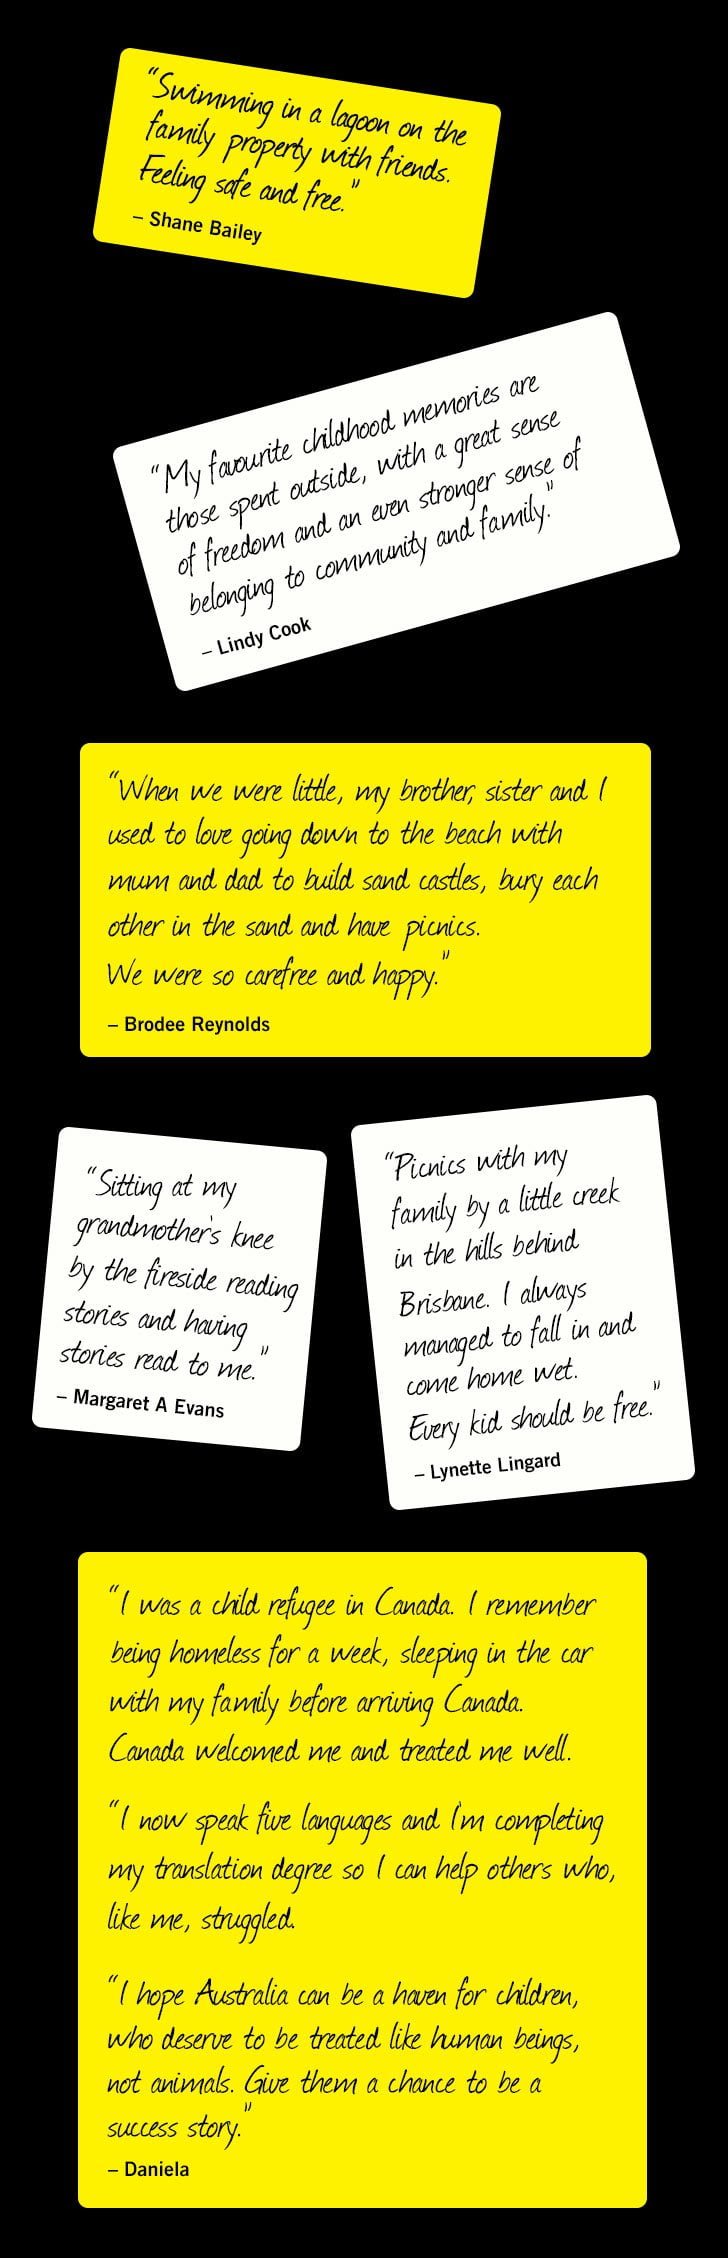 “Swimming in a lagoon on the
family property with friends.
Feeling safe and free.”
– Shane Bailey
“My favourite childhood memories are
those spent outside, with a great sense
of freedom and an even stronger sense of
belonging to community and family.”
– Lindy Cook
“When we were little, my brother, sister and I
used to love going down to the beach with
mum and dad to build sand castles, bury each
other in the sand and have picnics.
We were so carefree and happy.”
– Brodee Reynolds
“Sitting at my
grandmother's knee
by the fireside reading
stories and having
stories read to me.”
– Margaret A Evans
“Picnics with my
family by a little creek
in the hills behind
Brisbane. I always
managed to fall in and
come home wet.
Every kid should be free.”
– Lynette Lingard
“I was a child refugee in Canada. I remember
being homeless for a week, sleeping in the car
with my family before arriving Canada.
Canada welcomed me and treated me well.
“I now speak five languages and I'm completing
my translation degree so I can help others who,
like me, struggled.
“I hope Australia can be a haven for children,
who deserve to be treated like human beings,
not animals. Give them a chance to be a
success story.”
– Daniela